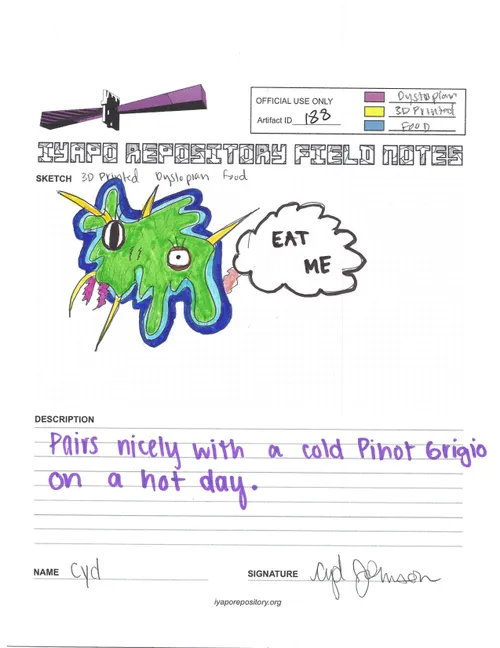 OFFICIAL USE ONLY
Artifact ID 188
Dystoplan
3D Printed
FOOD
IYAPO REPOSITORY FIELD NOTES
SKETCH 3D Printed Dystopian Food
EAT
ME
DESCRIPTION
Pairs nicely with a cold Pinot Grigio
on a hot day.
NAME Cyd
SIGNATURE Cyd Johnson
iyaporepository.org